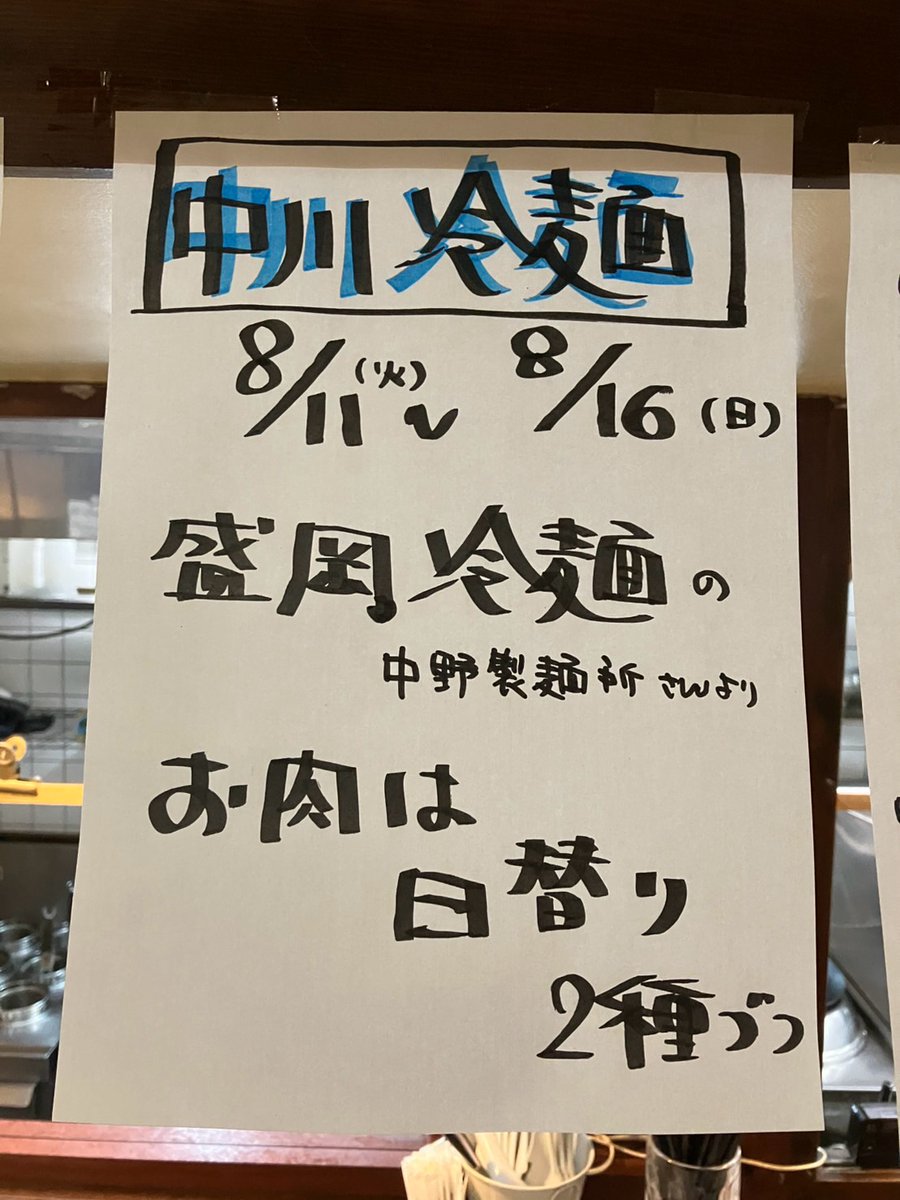 中川冷麺
8/11(火)〜8/16(日)
盛岡冷麺の
中野製麺所さんより
お肉は
日替り
2種づつ